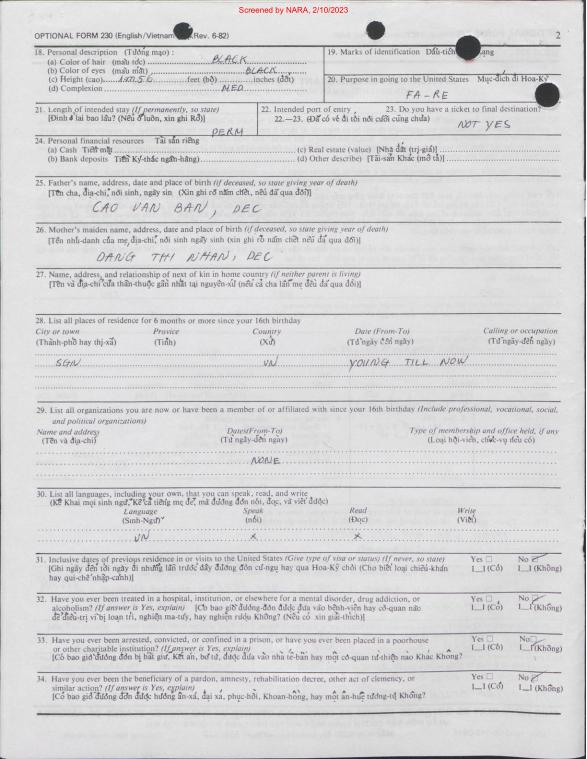 Screened by NARA, 2/10/2023
OPTIONAL FORM 230 (English/Vietnam Rev. 6-82) 2
18. Personal description (Tướng mạo) :
(a) Color of hair (màu tóc) BLACK
(b) Color of eyes (màu mắt) BLACK
(c) Height (cao) feet (bộ) inches (đốt)
(d) Complexion MED
19. Marks of identification Dấu-tiên ạng
20. Purpose in going to the United States Mục-đích đi Hoa-Kỳ
FA-RE
21. Length of intended stay (If permanently, so state)
[Định ở lại bao lâu? (Nếu ở luôn, xin ghi Rõ)]
PERM
22. Intended port of entry 23. Do you have a ticket to final destination?
22.—23. (Đã có vé đi tới nơi cuối cùng chưa)
NOT YES
24. Personal financial resources Tài sản riêng
(a) Cash Tiền mặt (c) Real estate (value) [Nhà đất (trị-giá)]
(b) Bank deposits Tiền Ký-thác ngân-hàng) (d) Other describe) [Tài-sản Khác (mô tả)]
25. Father's name, address, date and place of birth (if deceased, so state giving year of death)
[Tên cha, địa-chỉ, nơi sinh, ngày sin (Xin ghi rõ năm chết, nếu đã qua đời)]
CAO VAN BAN, DEC
26. Mother's maiden name, address, date and place of birth (if deceased, so state giving year of death)
[Tên nhũ-danh của mẹ, địa-chỉ, nơi sinh ngày sinh (xin ghi rõ năm chết nếu đã qua đời)]
DANG THI NHAN, DEC
27. Name, address, and relationship of next of kin in home country (if neither parent is living)
[Tên và địa-chỉ của thân-thuộc gần nhất tại nguyên-xứ (nếu cả cha lẫn mẹ đều đã qua đời)]
28. List all places of residence for 6 months or more since your 16th birthday
City or town Provice Country Date (From-To) Calling or occupation
(Thành-phố hay thị-xã) (Tỉnh) (Xứ) (Từ ngày đến ngày) (Từ ngày-đến ngày)
SGN VN YOUNG TILL NOW
29. List all organizations you are now or have been a member of or affiliated with since your 16th birthday (Include professional, vocational, social,
and political organizations)
Name and address Dates(From-To) Type of membership and office held, if any
(Tên và địa-chỉ) (Từ ngày-đến ngày) (Loại hội-viên, chức-vụ nếu có)
NONE
30. List all languages, including your own, that you can speak, read, and write
(Kê Khai mọi sinh ngữ, Kể cả tiếng mẹ đẻ, mà đương đơn nói, đọc, và viết được)
Language Speak Read Write
(Sinh-Ngữ) (nói) (Đọc) (Viết)
VN X X
31. Inclusive dates of previous residence in or visits to the United States (Give type of visa or status) (If never, so state) Yes No
[Ghi ngày đến tới ngày đi những lần trước đây đương đơn cư-ngụ hay qua Hoa-Kỳ chơi (Cho biết loại chiếu-khán (Có) (Không)
hay qui-chế nhập-cảnh)]
32. Have you ever been treated in a hospital, institution, or elsewhere for a mental disorder, drug addiction, or Yes No
alcoholism? (If answer is Yes, explain) [Có bao giờ đương-đơn được đưa vào bệnh-viện hay cơ-quan nào (Có) (Không)
để điều-trị vì bị loạn trí, nghiện ma-túy, hay nghiện rượu Không? (Nếu có xin giải-thích)]
33. Have you ever been arrested, convicted, or confined in a prison, or have you ever been placed in a poorhouse Yes No
or other charitable institution? (If answer is Yes, explain) (Có) (Không)
[Có bao giờ đương đơn bị bắt giữ, Kết án, bỏ tù, được đưa vào nhà tế-bần hay một cơ-quan từ-thiện nào Khác Không?
34. Have you ever been the beneficiary of a pardon, amnesty, rehabilitation decree, other act of clemency, or Yes No
similar action? (If answer is Yes, explain) (Có) (Không)
[Có bao giờ đương đơn được hưởng ân-xá, đại xá, phục-hồi, Khoan-hồng, hay một ân-huệ tương-tự Không?